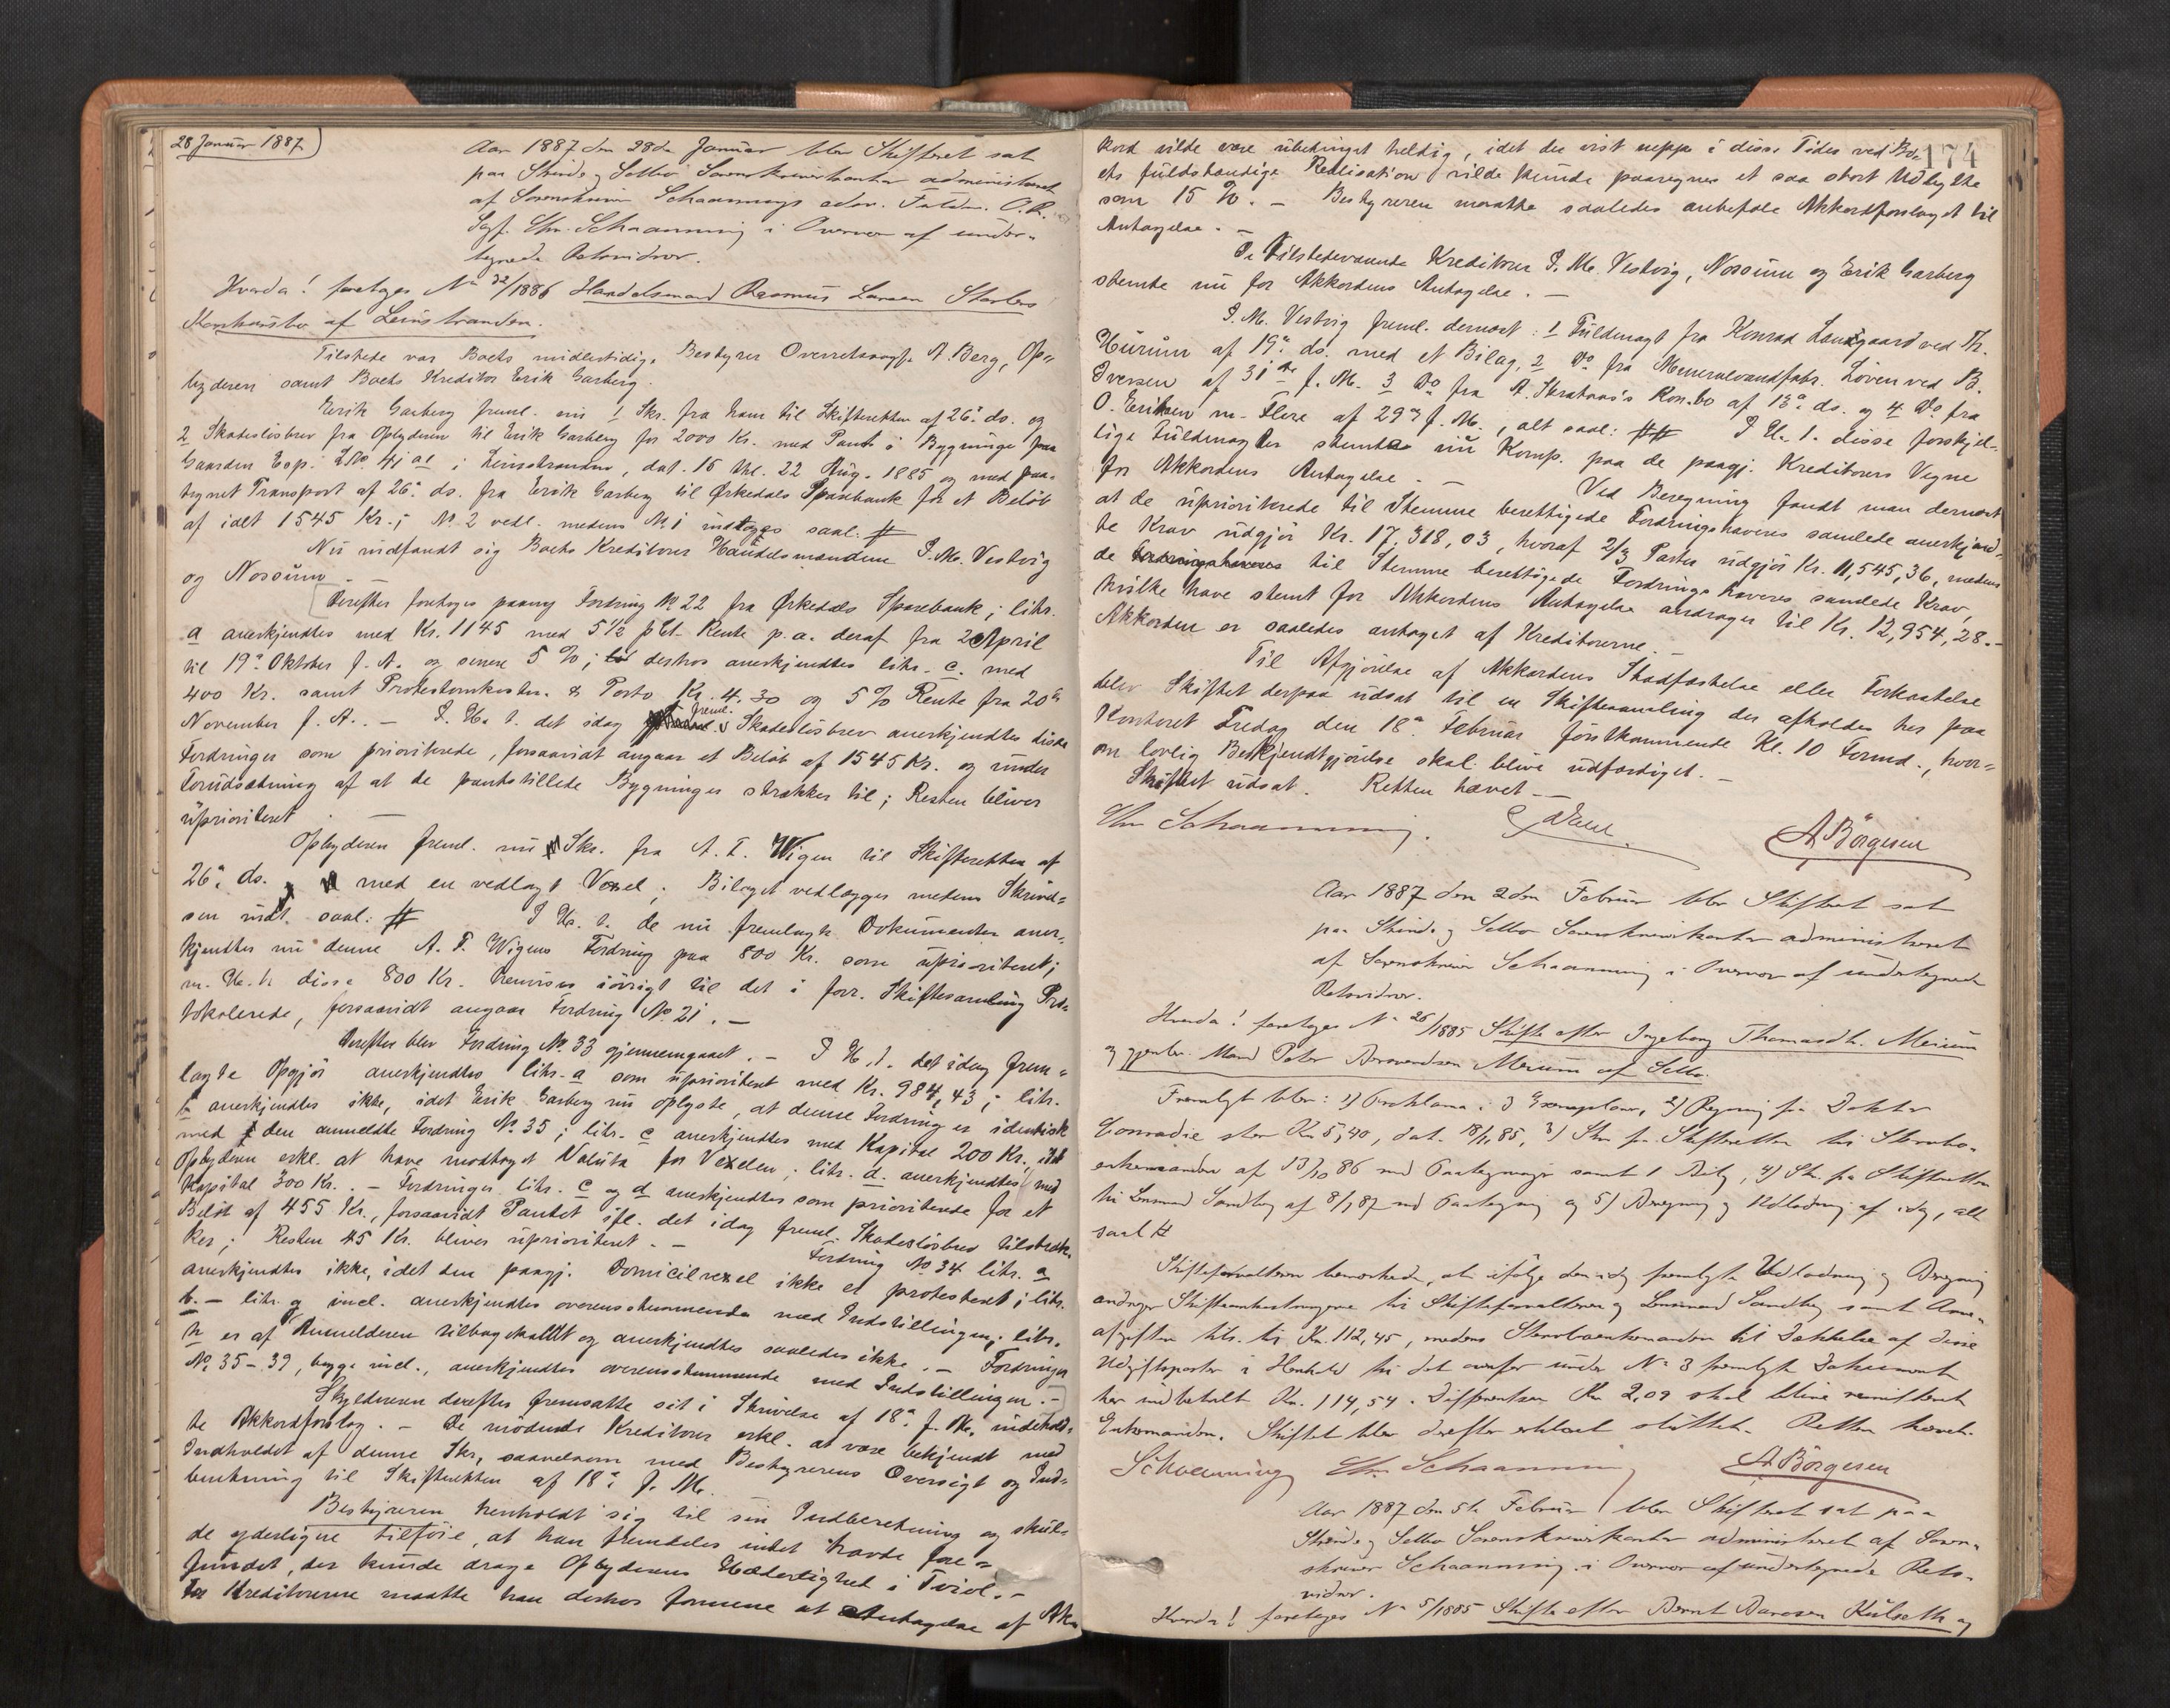 28 Januar 1887
Aar 1887 den 28de Januar blev Skifteret sat
paa Strinde og Selbo Sorenskriverkontor administreret
af Sorenskriver Schaannings adm. Fuldm. O.R.
Sagf. Chr. Schaanning i Overvær af under-
tegnede Retsvidner.
Hvorda! foretoges No 32/1886 Handelsmand Rasmus Larsen Storlers
Konkursbo af Leinstranden.
Tilstede var Boets midlertidige Bestyrer Overretssagf. A. Berg, Op-
byderen samt Boets Kreditor Erik Garberg.
Erik Garberg freml. nu 1 Skr. fra ham til Skifteretten af 26. ds. og
2 Skadesløsbrev fra Opbyderen til Erik Garberg for 2000 Kr. med Pant i Bygninge paa
Gaarden Esp. LNo 41 a1 i Leinstranden, dat. 15 thl. 22 Aug. 1885 og med paa-
tegnet Transport af 26. ds. fra Erik Garberg til Ørkedals Sparebank for et Beløb
af idet 1545 Kr.; No. 2 vedl. medens No 1 indtages saal. #
Nu indfandt sig Boets Kreditorer Handelsmændene I. M. Vestvig
og Nossum.
Derefter foretoges paany Fordring No 22 fra Ørkedals Sparebank; litr.
a anerkjendtes med Kr. 1145 med 5 1/2 pCt. Rente p.a. deraf fra 2 April
til 19. Oktober f. A. og senere 5 %; deshos anerkjendtes litr. c. med
400 Kr. samt Protestomkostn. & Porto Kr. 4.30 og 5 % Rente fra 20.
November f. A. – I H. t. det idag freml. Skadesløsbrev anerkjendtes disse
Fordringer som prioriterede, forsaavidt angaar et Beløb af 1545 Kr. og under
Forudsætning af at de pantstillede Bygninger strækker til; Resten bliver
uprioriteret.
Opbyderen freml. nu Skr. fra A. T. Wigen til Skifteretten af
26. ds. med en vedlagt Vexel; Bilaget vedlægges medens Skrivel-
sen indt. saal: # I H. t. de nu fremlagte Dokumenter aner-
kjendtes nu denne A. T. Wigens Fordring paa 800 Kr. som uprioriteret;
m. H. t. disse 800 Kr. henvises iøvrigt til det i forr. Skiftesamling Pro-
tokolerede, forsaavidt angaar Fordring No 21. –
Derefter blev Fordring No. 33 gjennemgaaet. – I H. t. det idag frem-
lagte Opgjør anerkjendtes litr. a som uprioriteret med Kr. 984,43; litr.
b anerkjendtes ikke, idet Erik Garberg nu oplyste, at denne Fordring er identisk
med den anmeldte Fordring No. 35; litr. c anerkjendtes med Kapital 200 Kr., idet
Opbyderen erkl. at have modtaget Valuta for Vexelen; litr. d. anerkjendtes med
Kapital 300 Kr. – Fordringer litr. c og d anerkjendtes som prioriterede for et
Beløb af 455 Kr., forsaavidt Pantet ifl. det idag freml. Skadesløsbrev tilstræk-
ker; Resten 45 Kr. bliver uprioriteret. – Fordring No 34 litr. a
anerkjendtes ikke, idet den paagj. Domicilvexel ikke er protesteret; litr.
b. – litr. g incl. anerkjendtes overensstemmende med Indstillingen; litr.
h er af Anmelderen tilbagekaldt og anerkjendtes saaledes ikke. – Fordringer
No. 35-39, begge incl., anerkjendtes overensstemmende med Indstillingen. –
Skylderen derefter fremsatte sit i Skrivelse af 18. f. M. indehold-
te Akkordforslag. – De mødende Kreditorer erkl. at være bekjendt med
Indholdet af denne Skr., saavelsom med Bestyrerens Oversigt og Ind-
beretning til Skifteretten af 18. f. M.
Bestyreren henholdt sig til sin Indberetning og skul-
de yderligere tilføie, at han fremdeles intet havde fore-
fundet, der kunde drage Opbyderens Hæderlighed i Tvivl. –
For Kreditorerne maatte han deshos formene at Antagelse af Ak-
174
kord vilde være ubetinget heldig, idet der vist neppe i disse Tider ved Bo-
ets fuldstændige Realisation vilde kunde paaregnes et saa stort Udbytte
som 15 %. – Bestyreren maatte saaledes anbefale Akkordforslaget til
Antagelse. –
De tilstedeværende Kreditorer I. M. Vestvig, Nossum og Erik Garberg
stemte nu for Akkordens Antagelse. –
I. M. Vestvig freml. dernæst: 1 Fuldmagt fra Konrad Langgaard ved Th.
Hurum af 19. ds. med et Bilag, 2 Do fra Mineralvandfabr. Løven ved B.
Iversen af 31te f. M. 3 Do fra A. Skrataas's Kon.bo af 13. ds. og 4 Do fra
O. Eriksen m. Flere af 29. f. M., alt saal: ## I H. t. disse forskjel-
lige Fuldmagter stemte nu Komp. paa de paagj. Kreditorers Vegne
for Akkordens Antagelse. – Ved Beregning fandt man dernæst
at de uprioriterede til Stemme berettigede Fordringshaveres samlede anerkjend-
te Krav udgjør Kr. 17,318,03, hvoraf 2/3 Parter udgjør Kr. 11,545,36, medens
de til Stemme berettigede Fordringshaveres samlede Krav,
hvilke have stemt for Akkordens Antagelse andrager til Kr. 12,954,28. –
Akkorden er saaledes antaget af Kreditorerne. –
Til Afgjørelse af Akkordens Stadfæstelse eller Forkastelse
blev Skiftet derpaa udsat til en Skiftesamling der afholdes her paa
Kontoret Fredag den 18. Februar førstkommende Kl. 10 Formd., hvor-
om lovlig Bekjendtgjørelse skal blive udfærdiget. –
Skiftet udsat. Retten hævet –
Chr Schaanning. A Børgesen
Aar 1887 den 2den Februar blev Skifteret sat
paa Strinde og Selbo Sorenskriverkontor administreret
af Sorenskriver Schaanning i Overvær af undertegnede
Retsvidner.
Hvorda! foretoges No 26/1885 Skifte efter Ingeborg Thomasdtr. Meium
og gjenlev. Mand Peter Meium af Selbo.
Fremlagt blev: 1) Proklama i 3 Exemplarer, 2) Regning fra Doktor
Conradie stor Kr 5,40, dat. 18/1,85, 3) Skr. fra Skifteretten til Stervbo-
enkemanden af 13/10 86 med Paategninger samt 1 Bilag, 4) Skr. fra Skifteretten
til Lensmand Sandberg af 8/1,87 med Paategning og 5) Beregning og Udlodning af idag, alt
saal #
Skifteforvalteren bemærkede, at ifølge den idag fremlagte Udlodning og Beregning
andrager Skifteomkostningerne til Skifteforvalteren og Lensmand Sandberg samt Arve-
afgiften tils. til Kr. 112,45, medens Stervboenkemanden til Dækkelse af disse
Udgiftsposter i Henhold til det ovenfor under No 3 fremlagte Dokument
har indbetalt Kr. 114,54. Differentsen Kr 2,09 skal blive remitteret
Enkemanden. Skiftet blev derefter erklæret sluttet. Retten hævet.
Schaanning Chr Schaanning A Børgesen
Aar 1887 den 5te Februar blev Skifteret sat paa
Strinde og Selbo Sorenskriverkontor administreret af Soren-
skriver Schaanning i Overvær af undertegnede Rets-
vidner.
Hvorda! foretoges No 5/1885 Skifte efter Bernt Kulseth og